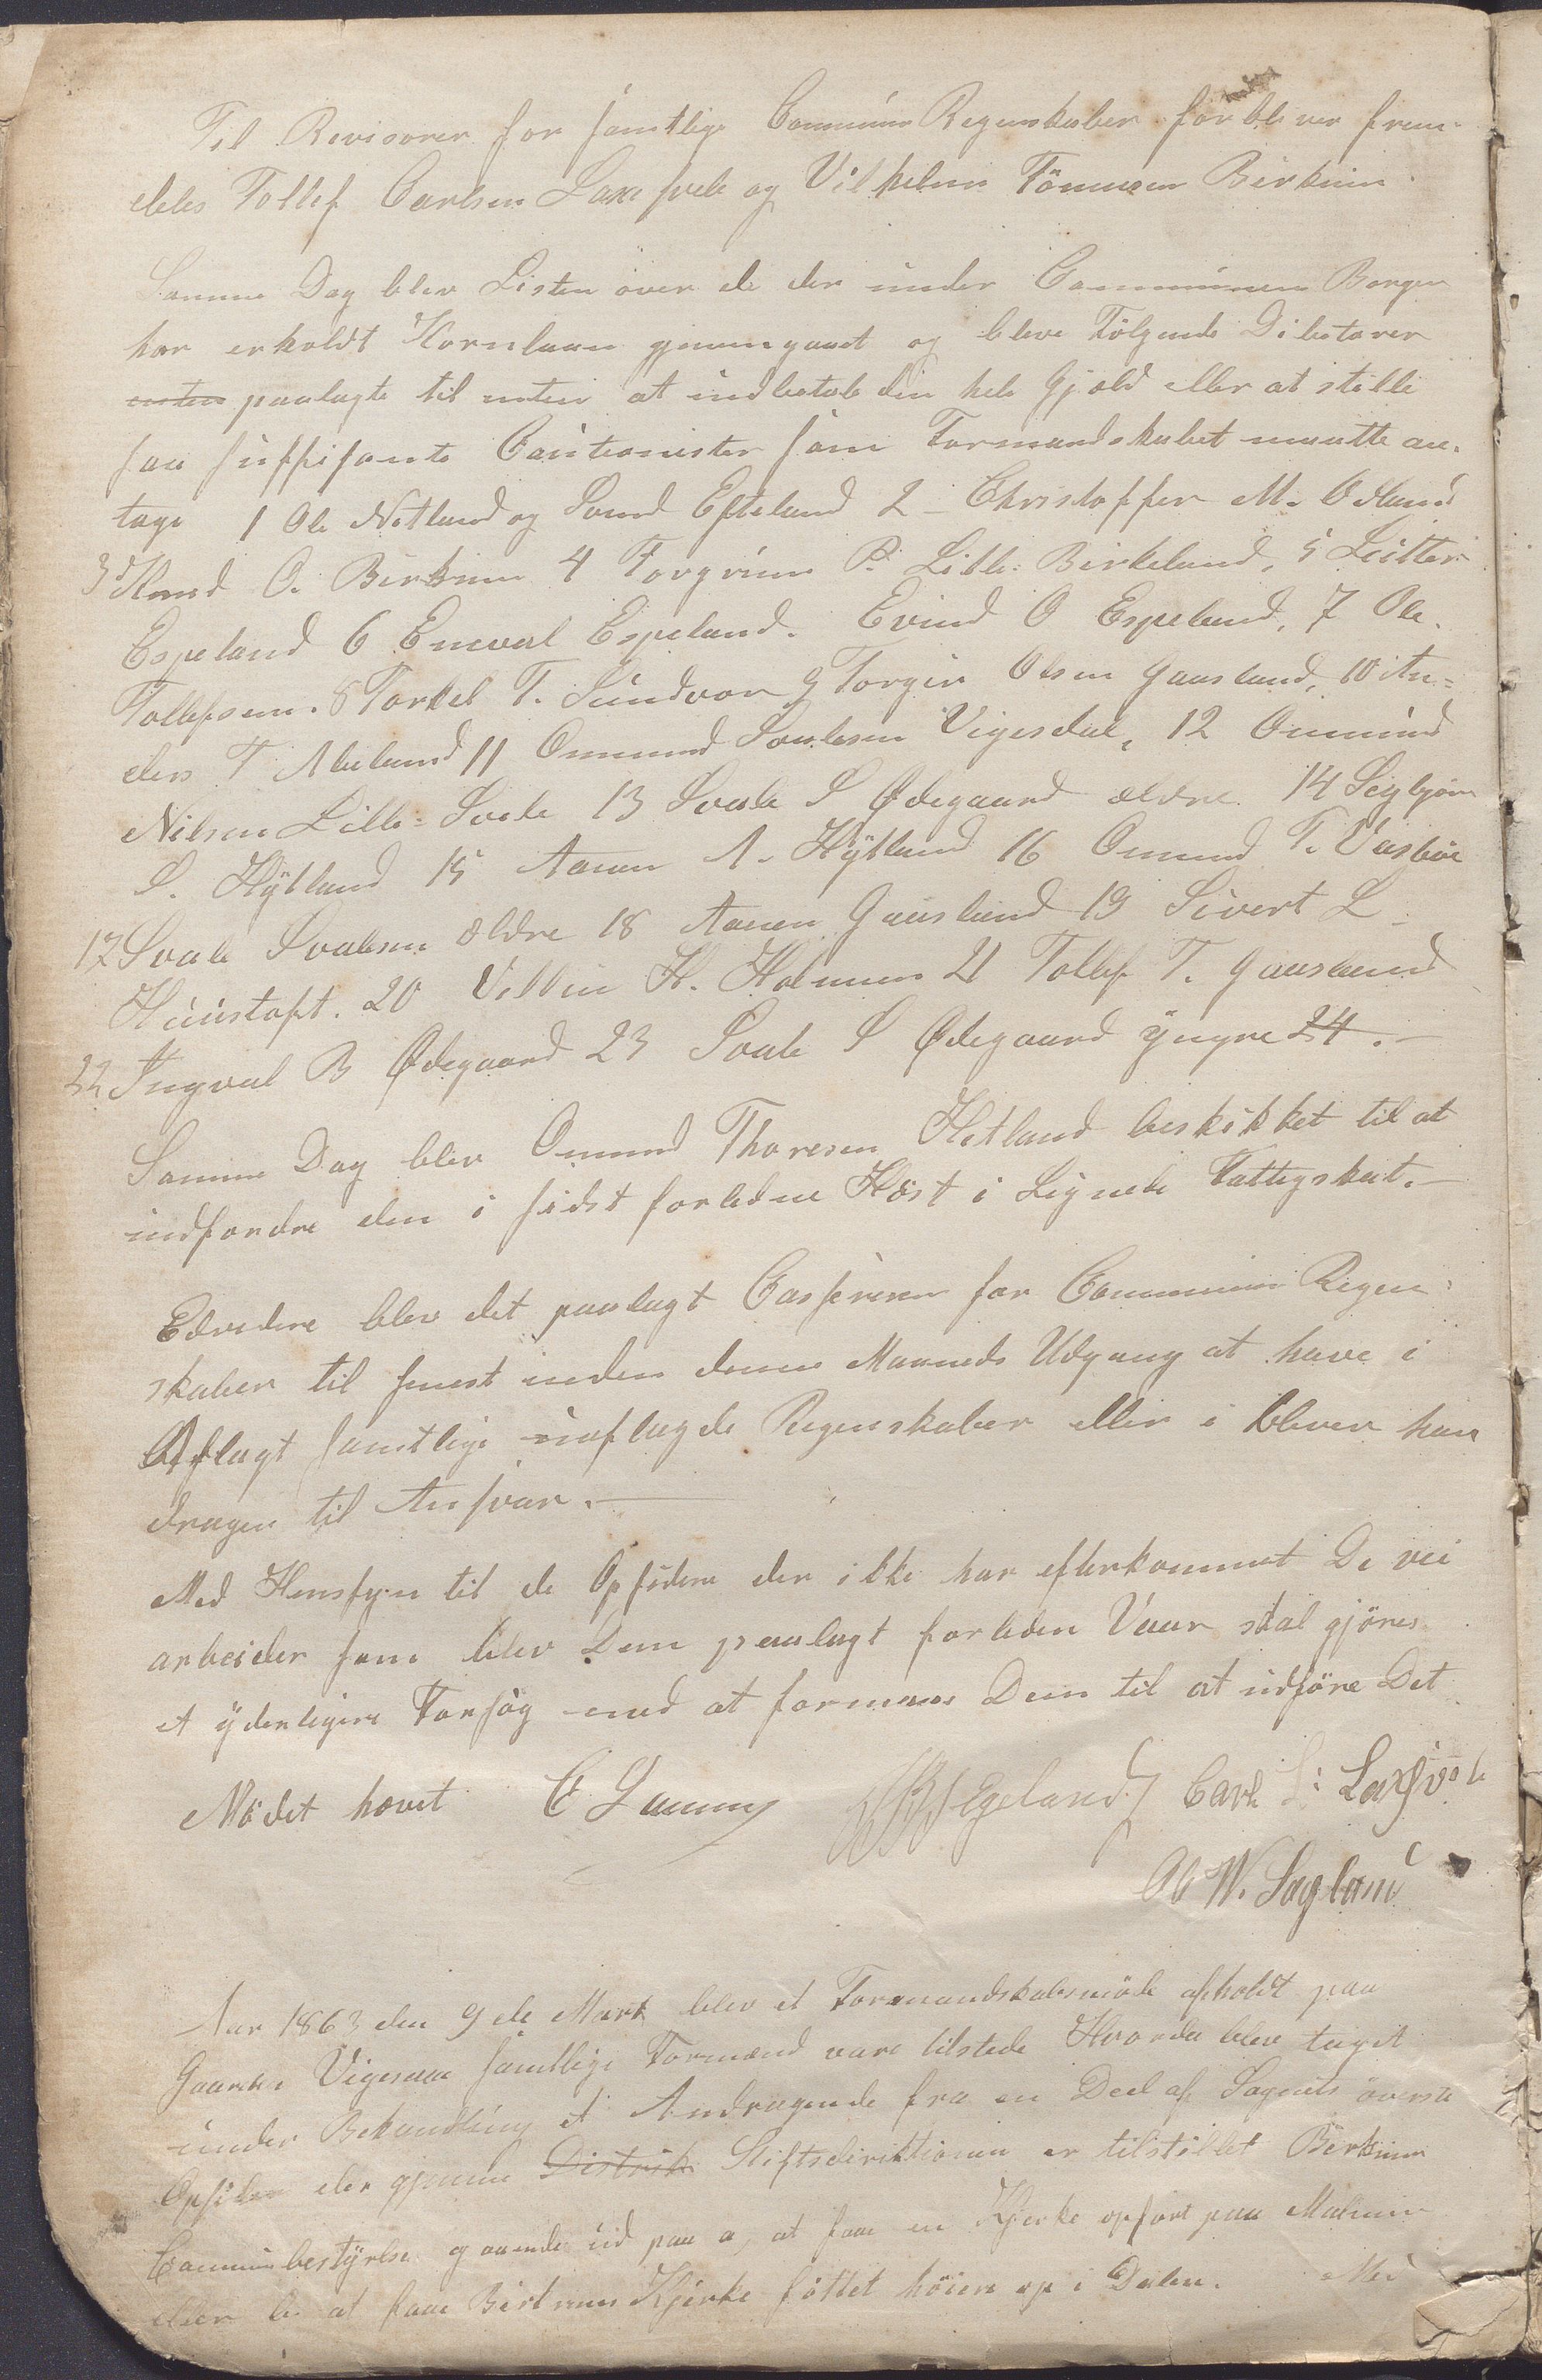 Til Revisorer for samtlige Commune Regnskaber forbliver frem-
deles Tollef Carlsen Laxesvele og Vilhelm Tönnesen Birkrem
Samme Dag blev Listen över de der under Communens Borgen
har erholdt Kornlaan gjennemgaaet og bleve Fölgende Debitorer
enten paalagte til enten at indbetale den hele Gjæld eller at stille
saa suffisante Cautionister som Formandskabet maatte an-
tage 1 Ole Netland og Svend Efteland 2 - Christoffer M. Ødland
3 Knud O. Birkrem 4 Torgrim P. Litle-Birkeland, 5
Espeland 6 Eneval Espeland. Evind O Espeland, 7 Ole
Tollefsen. 8 Torkel T. Sundvor 9 Torger Olsen Gausland, 10 An-
ders T Abeland 11 Ommund Svalesen Vigesdal, 12 Ommund
Nilsen Lille-Svele 13 Svale S Ødegaard ældre 14 Seglgjörn
S. Hÿtland 15 Aanen A. Hÿtland 16 Omund T. Vasböe
17 Svale Svalesen ældre 18 Aanen Gausland 19 Sivert L
Hünstoft. 20 H. Holmen 21 Tollef T. Gausland
22 Ingval B Ødegaard 23 Svale S Ødegaard ÿngre 24.-
Samme Dag blev Omund Thoresen Hetland beskikket til at
indfordre den i sidst forledne Höst i Lignede Fattigskat.-
Edvidere blev det paalagt Casserer for Commune Regn-
skaber til senest inden denne Maaneds Udgang at have i
Aflagt samtlige uaflagde Regnskaber eller i bliver han
dragen til Ansvar.
Med Hensyn til de Opsidere der ikke har efterkommet De vei
arbeider som blev Dem paalagt forleden Vaar skal gjöres
et ÿderligere Forsög med at formaa Dem til at udföre Det
Mödet hævet Egeland Carl Laxsvele
W. Sagland
Aar 1863 den 9de Marts blev et Formandskabsmöde afholdt paa
Gaarden Vigesaa samtlige Formænd vare tilstede Hvorda blev taget
under Behandling et Andragende fra en Deel af Sognets överste
Opsidere der gjennem Distrik Stiftsdirektionen er tilstillet Birkrem
Communbestÿrelse gaaende ud paa a, at faae en Kjerke opfört paa Malmin
eller b. at faae Birkrems Kjerke flöttet höiere op i Dalen. Med